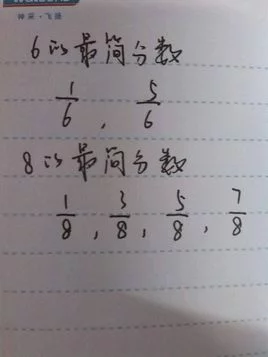 神采·飞扬
6的最简分数
1/6 , 5/6
8的最简分数
1/8 , 3/8 , 5/8 , 7/8